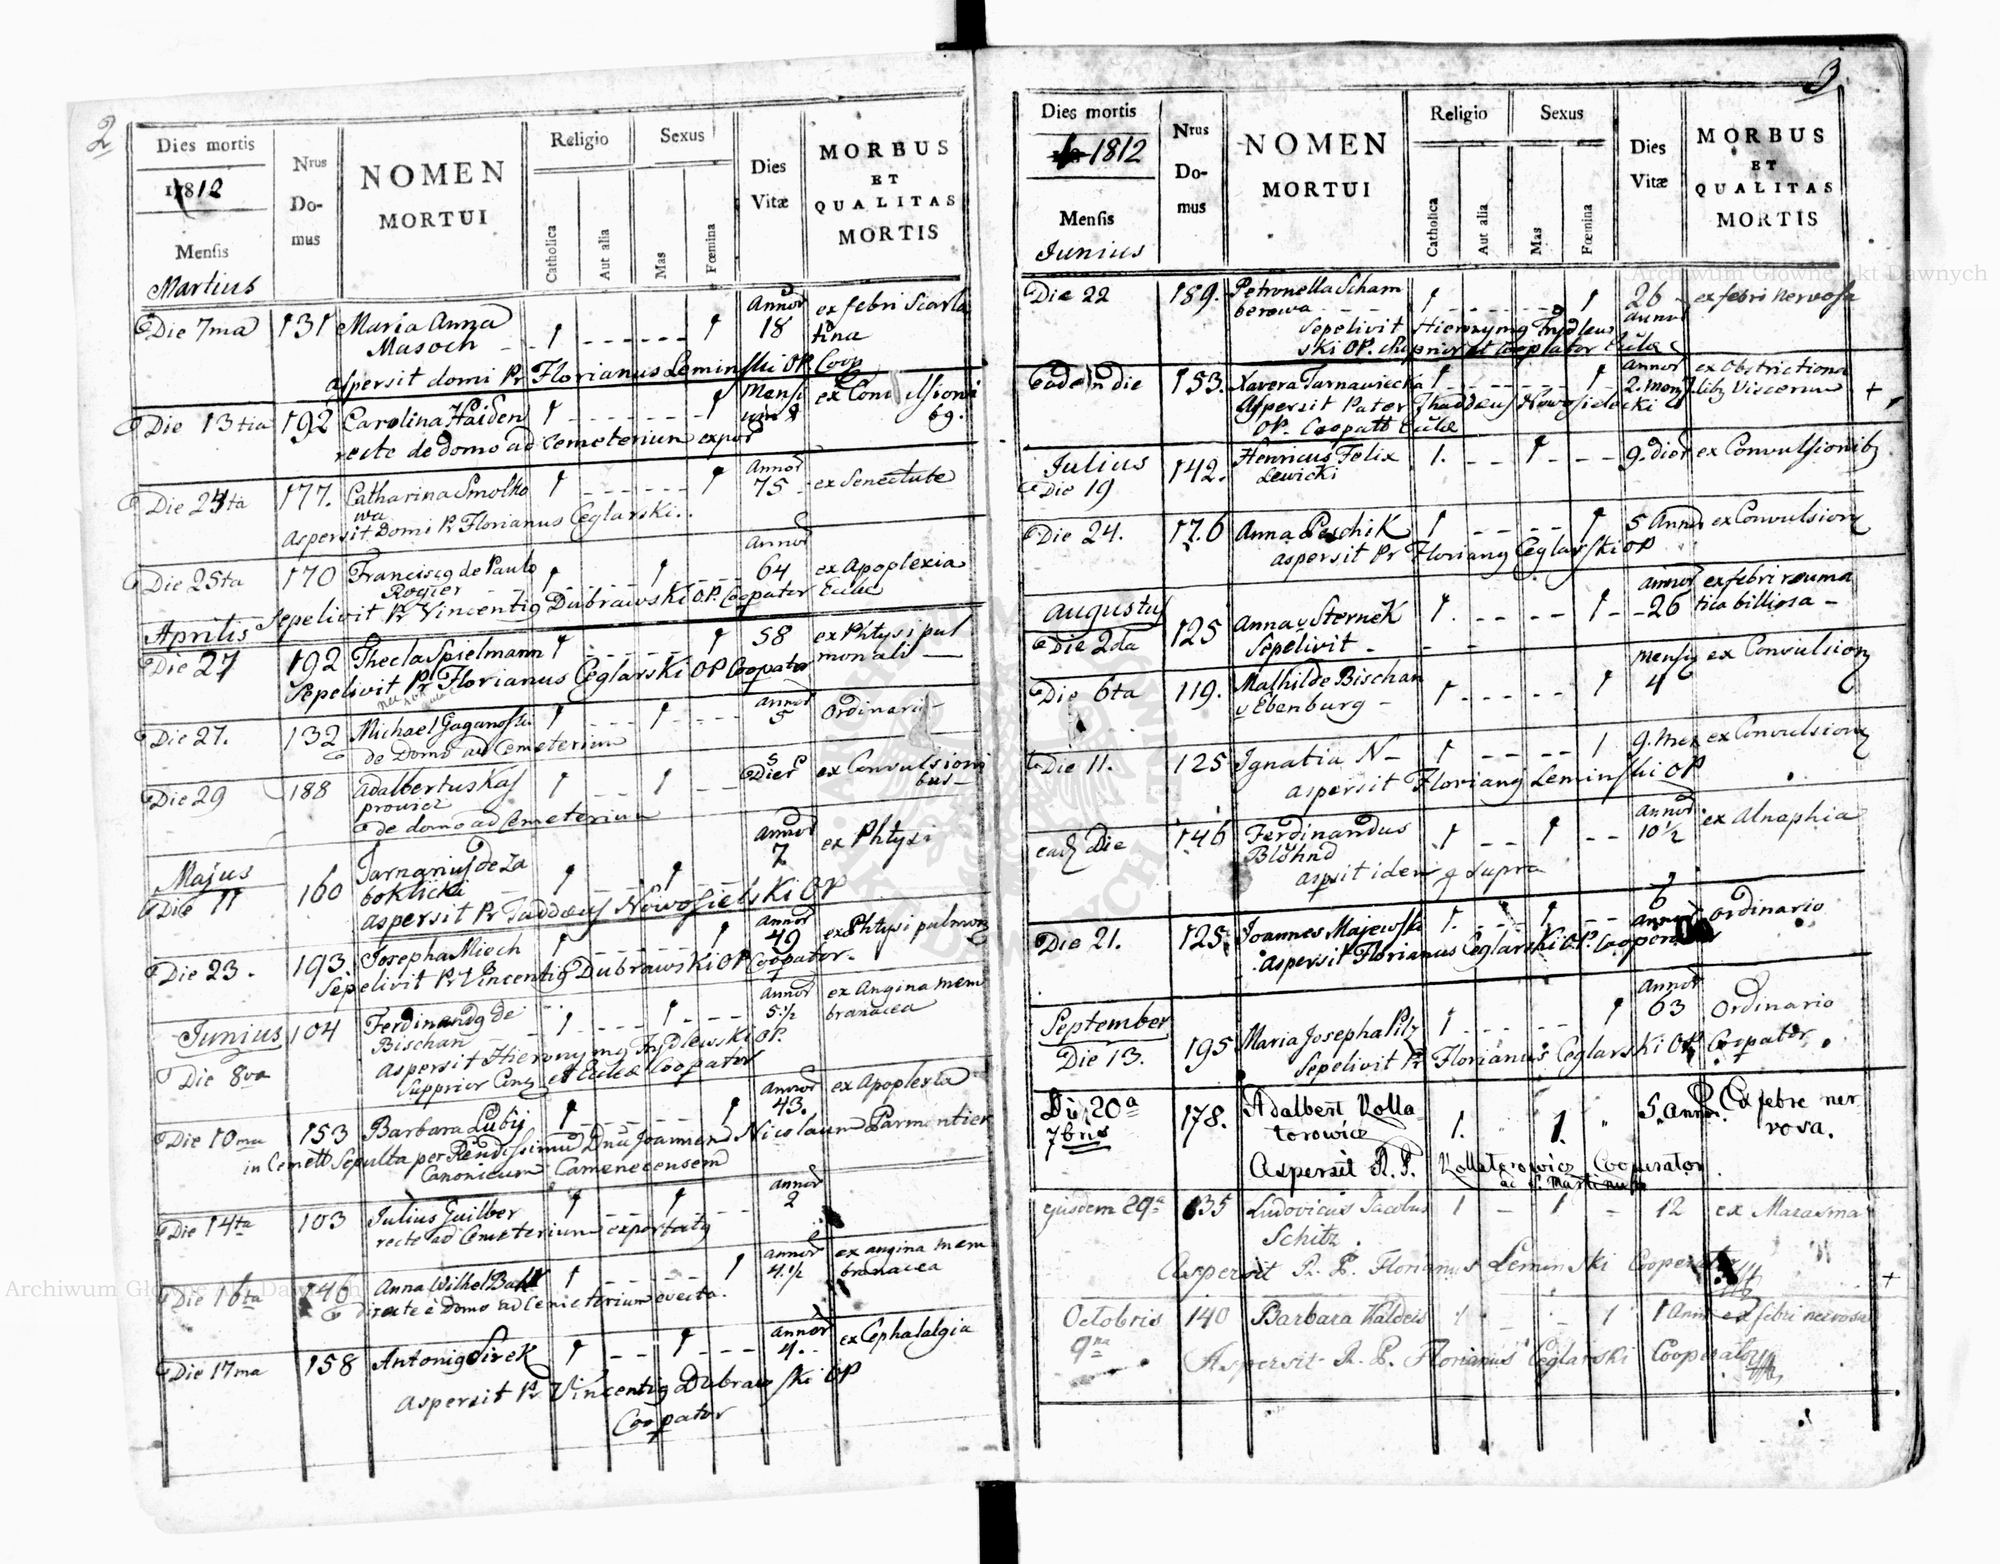 2
Dies mortis
1812
Mensis
Martius
Nrus
Do-
mus
NOMEN
MORTUI
Religio
Catholica
Aut alia
Sexus
Mas
Fœmina
Dies
Vitæ
MORBUS
ET
QUALITAS
MORTIS
Die 7ma 131 Maria Anna Masoch 1 1 Annor 18 ex febri Scarla
tina
aspersit domi Pr Florianus Leminski OP. Coop
Die 13tia 192 Carolina Haiden 1 1 Mensi
recte de domo ad Cemeterium expor
Die 24ta 177. Catharina Smolko
wa 1 1 Annor 75 ex Senectute
Aspersit Domi Pr Florianus Ceglarski.
Die 25ta 170 Franciscg de Paulo
Rogier 1 1 Annor 64 ex Apoplexia
Sepelivit Pr Vincentig Dubrawski O.P. Coopator Eccliæ
Aprilis
Die 27 192 Thecla Spielmann 1 1 58 ex Phtysi pul
monali
Sepelivit Pr Florianus Ceglarski OP Coopator
Die 27. 132 Michael Gaganoski 1 1 annor 5 Ordinario
de Domo ad Cemeterium
Die 29 188 Adalbertus Kas
prowicz 1 1 5 Dier ex Convulsioni
bus
de domo ad Cemeterium
Majus
Die 11 160 de Za
boklicki 1 1 annor 2 ex Phtysi
aspersit Pr Taddæus Nowosielski OP
Die 23. 193. Josepha Miech 1 1 annor 49 ex Phtysi pulmon
Sepelivit Pr Vincentig Dubrawski OP Coopator.
Junius
Die 8va 104 Ferdinandg de
Bischan 1 1 annor 5 1/2 ex Angina mem
branacea
Aspersit Hieronymg Frydlewski OP.
Supprior et Eccleæ Coopator
Die 10ma 153 Barbara Lubij 1 1 annor 43. ex Apoplexia
in Cemett Sepulta per Rendissimum Dnum Joannem Nicolaum Parmentier
Canonicum Camenecensem
Die 14ta 103 Julius Guilber 1 1 annor 2
recte ad Cemeterium exportatg
Die 16ta 146 Anna Wilhel 1 1 annor 4 1/2 ex angina mem
branacea
directe è Domo ad Cemeterium evecta.
Die 17ma 158 Antonig Sirek 1 1 annor 4. ex Cephalalgia
aspersit Pr Vincentig Dubrawski OP
Coopator
3
Dies mortis
1812
Mensis
Junius
Nrus
Do-
mus
NOMEN
MORTUI
Religio
Catholica
Aut alia
Sexus
Mas
Fœmina
Dies
Vitæ
MORBUS
ET
QUALITAS
MORTIS
Die 22 189. Petronella Scham
berowa 1 1 26 annor ex febri nervosa
Sepelivit Hieronymg Frydlew
ski OP.
Eadem die 153. Xavera Tarnawiecka 1 1 annor 2. mens ex Obstrictiona
Viscerum +
Aspersit Pater Thaddeus Nowosielecki
OP. Coopatt Eccliæ
Julius
Die 19 142. Henricus Felix
Lewicki 1. 1 9. dier ex Convulsionibg
Die 24. 176 Anna Peschik 1 1 5 Annor ex Convulsiong
aspersit Pr Floriang Ceglarski OP
Augustus
Die 2da 125 Anna v Sternek 1. 1 annor 26 ex febri reuma
tica billiosa
Sepelivit
Die 6ta 119. Mathilde Bischan
v Ebenburg 1 1 mensig 4 ex Convulsiong
Die 11. 125 Ignatia N- 1 1 9. men ex Convulsiong
aspersit Floriang Leminski OP
eadg Die 146 Ferdinandus
Blöhnd 1 1 annor 10 1/2 ex Atrophia
aspsit idem q supra
Die 21. 125. Joannes Majewski 1. 1 6 annor Ordinario
Aspersit Florianus Ceglarski O.P. Cooper
September
Die 13. 195 Maria Josepha Pilz 1 1 annor 63 Ordinario
Sepelivit Pr Florianus Ceglarski OP Coopator
Die 20a
7bris 178. Adalbert Kolla
torowicz 1. 1. 5. Annor. Ex febre ner
vosa.
Aspersit R. P. Kollatorowicz Cooperator
ad S. Martinum
ejusdem 29a 135 Ludovicus Jacobus
Schitz. 1 1 12 ex Marasma
Aspersit R. P. Florianus Leminski Cooperat
+
Octobris
9na 140 Barbara Kaldeis 1 1 1 Ann ex febri nervosa
Aspersit R. P. Florianus Ceglarski Cooperator
Archiwum Główne Akt Dawnych
Archiwum Główne Akt Dawnych
ARCHIWUM GŁÓWNE AKT DAWNYCH